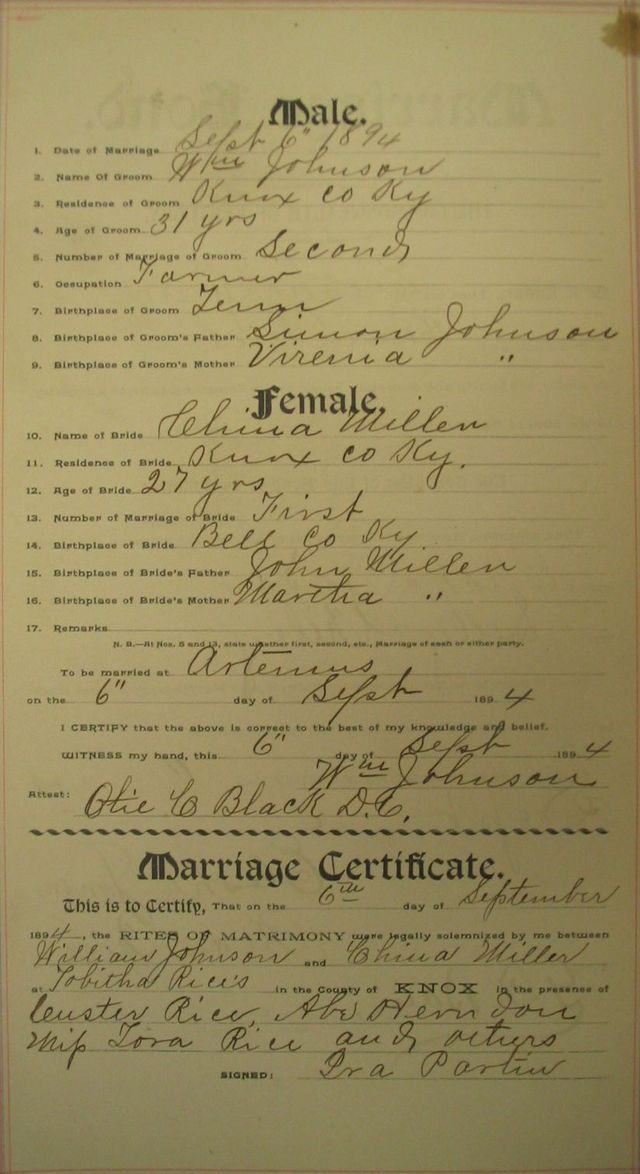 Male.
1. Date of Marriage Sept 6" 1894
2. Name Of Groom Wm Johnson
3. Residence of Groom Knox co Ky
4. Age of Groom 31 yrs
5. Number of Marriage of Groom Second
6. Occupation Farmer
7. Birthplace of Groom Tenn
8. Birthplace of Groom's Father Simon Johnson
9. Birthplace of Groom's Mother Virenia "
Female.
10. Name of Bride China Miller
11. Residence of Bride Knox co Ky.
12. Age of Bride 27 yrs
13. Number of Marriage of Bride First
14. Birthplace of Bride Bell Co Ky
15. Birthplace of Bride's Father John Miller
16. Birthplace of Bride's Mother Martha "
17. Remarks
N. B.—At Nos. 5 and 13, state whether first, second, etc., Marriage of each or either party.
To be married at Artemus
on the 6" day of Sept 1894
I CERTIFY that the above is correct to the best of my knowledge and belief.
WITNESS my hand, this 6" day of Sept 1894
Wm Johnson
Attest: Otie C Black D.C.
Marriage Certificate.
This is to Certify, That on the 6th day of September
1894, the RITES OF MATRIMONY were legally solemnized by me between
William Johnson and China Miller
at Tobitha Rice's in the County of KNOX in the presence of
Custer Rice, Abe Herndon
Miss Tora Rice and others
SIGNED: Ira Partin